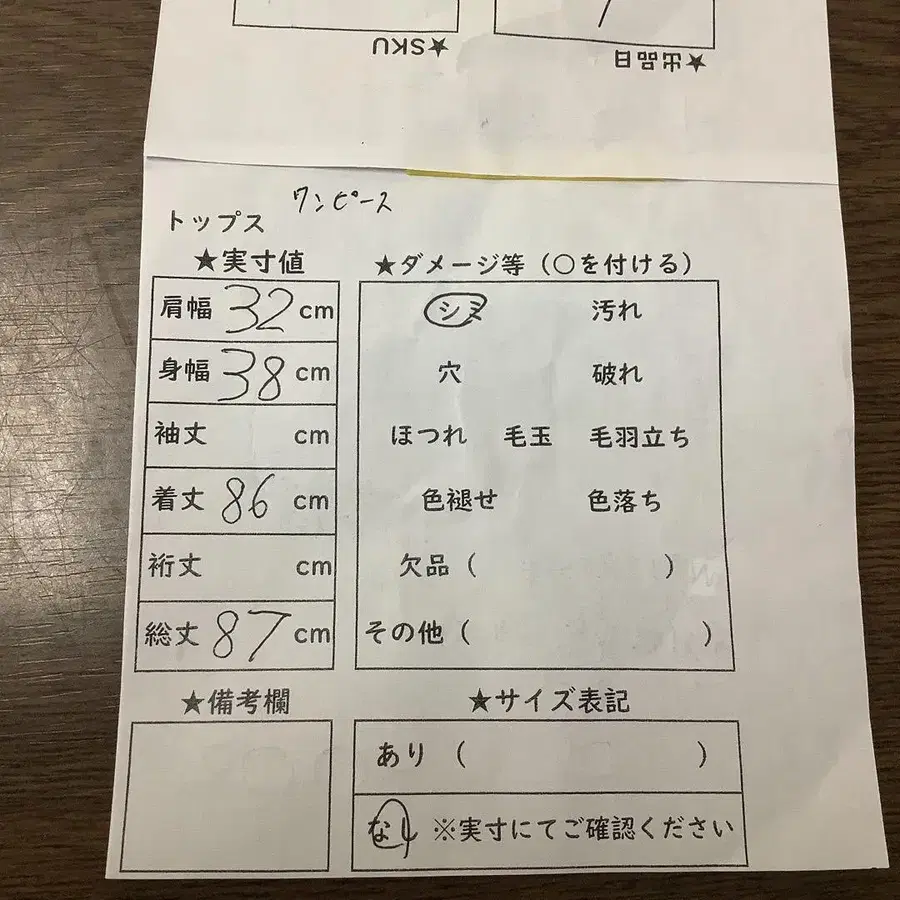 ★SKU
★出品日
ワンピース
トップス
★実寸値
肩幅 32 cm
身幅 38 cm
袖丈 cm
着丈 86 cm
裄丈 cm
総丈 87 cm
★ダメージ等（○を付ける）
シミ 汚れ
穴 破れ
ほつれ 毛玉 毛羽立ち
色褪せ 色落ち
欠品（ ）
その他（ ）
★備考欄
★サイズ表記
あり（ ）
なし ※実寸にてご確認ください